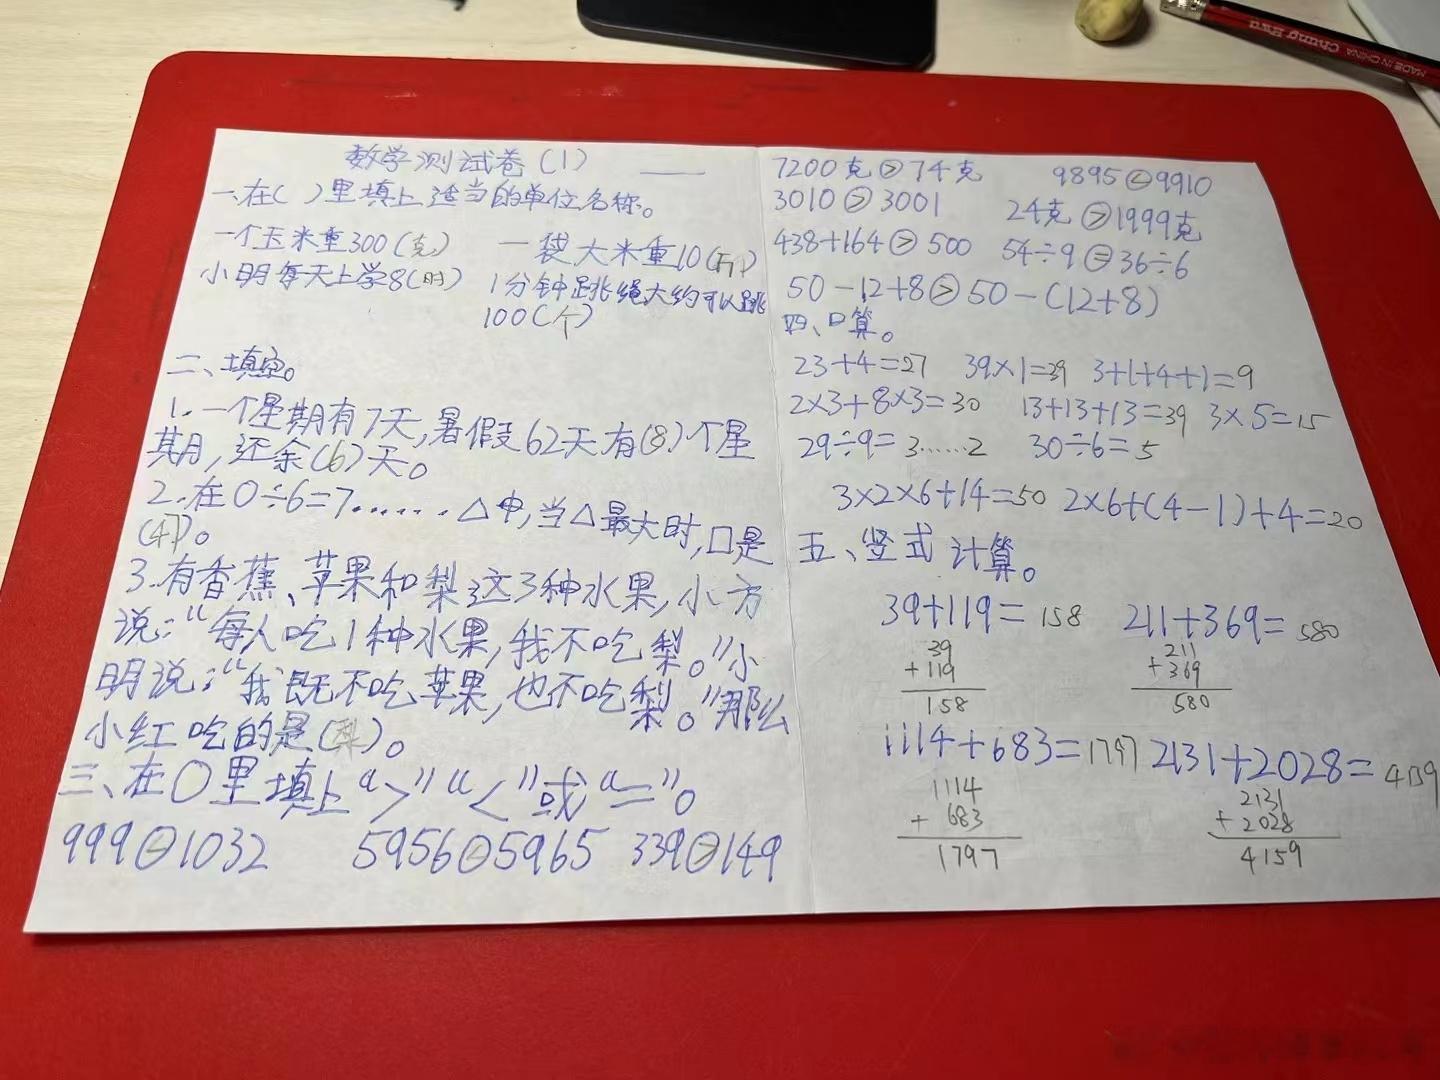 数学测试卷(1)
一、在( )里填上适当的单位名称。
一个玉米重300(克) 一袋大米重10(斤)
小明每天上学8(时) 1分钟跳绳大约可以跳
100(个)
二、填空。
1.一个星期有7天,暑假支62天有(8)个星
期,还余(6)天。
2.在□÷6=7……△中,当△最大时,□是
(47)。
3.有香蕉、苹果和梨这3种水果,小方
说:“每人吃1种水果,我不吃梨。”小
明说:“我既不吃苹果,也不吃梨。”那么
小红吃的是(梨)。
三、在○里填上“>”“<”或“=”。
999<1032 5956<5965 339>149
7200克>74克 9895<9910
3010>3001 24克>1999克
438+164>500 54÷9=36÷6
50-12+8>50-(12+8)
四、口算。
23+4=27 39×1=39 3+1+4+1=9
2×3+8×3=30 13+13+13=39 3×5=15
29÷9=3……2 30÷6=5
3×2×6+14=50 2×6+(4-1)+4=20
五、竖式计算。
39+119=158 211+369=580
39 211
+119 +369
158 580
1114+683=1797 2131+2028=4159
1114 2131
+ 683 +2028
1797 4159
MADE IN CHINA Chung Hwa